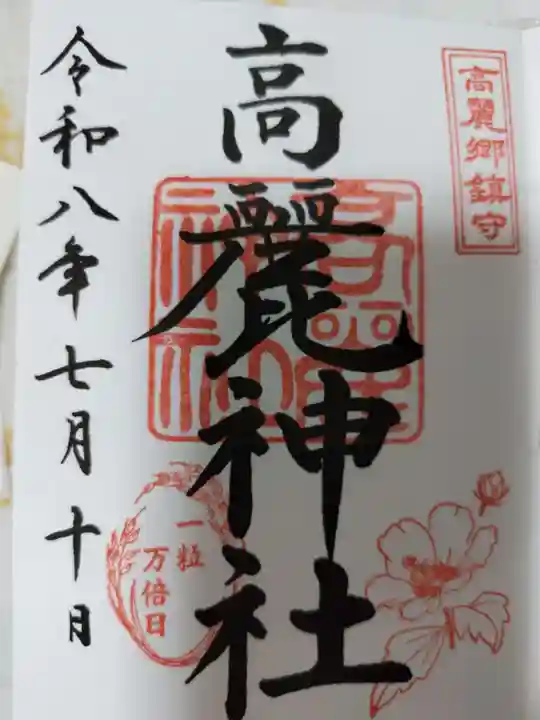 高麗郷鎮守
高麗神社
高麗神社
一粒
万倍日
令和八年七月十日